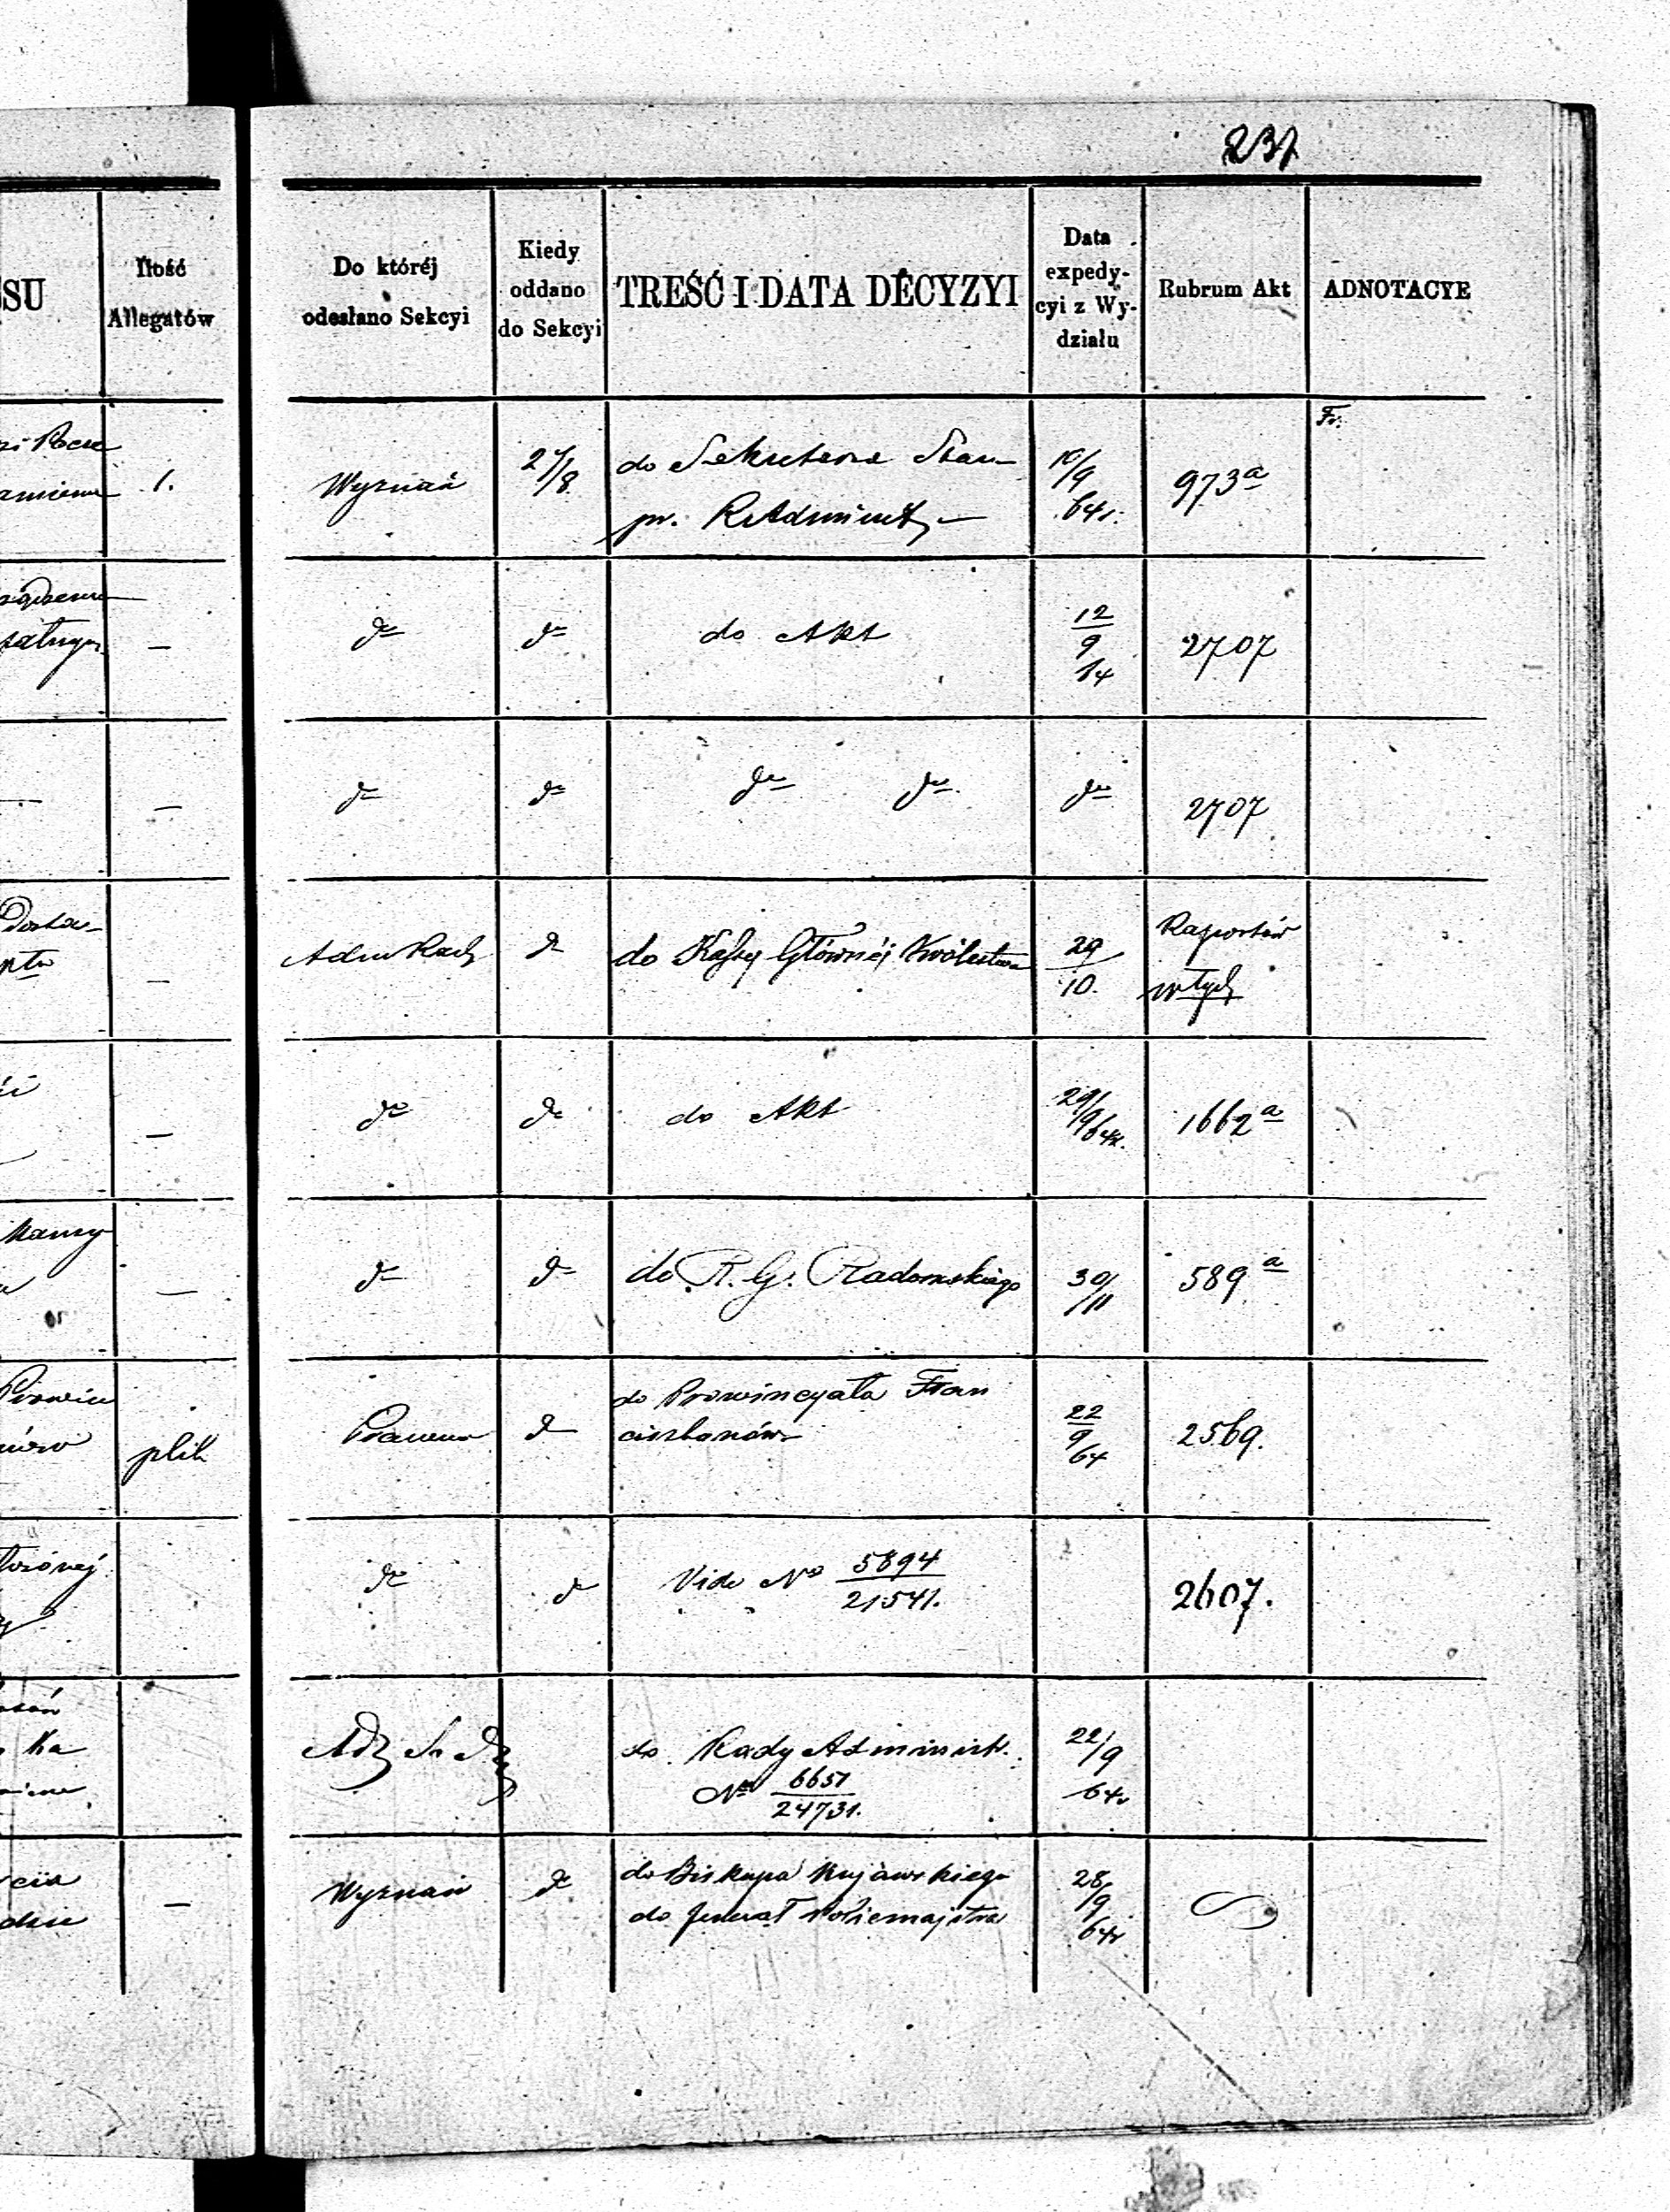 237
SU
Ilość
Allegatów
Do któréj
odesłano Sekcyi
Kiedy
oddano
do Sekcyi
TREŚĆ I DATA DECYZYI
Data
expedy-
cyi z Wy-
działu
Rubrum Akt
ADNOTACYE
1.
Wyznań
27/8
do Sekretarza Stanu
pr. R. Administ.
10/9
64 r.
973 a
do
do
do Akt
12
9
64
2707
—
do
do
do do
do
2707
—
do
do Kassy Głównéj Królestwa
29
10.
Raportów
—
do
do
do Akt
29/9 64 r.
1662 a
—
do
do
do R. G. Radomskiego
30/11
589 a
—
plik
Prawna
do
do Prowincyała Fran
ciszkanów
22
9
64
2569.
do
do
Vide No 5894
21541.
2607.
do Rady Administ.
No 6651
24731.
22/9
64 r
—
Wyznań
do
do Biskupa Kujawskiego
do Jenerał Policmajstra
28/9
64 r